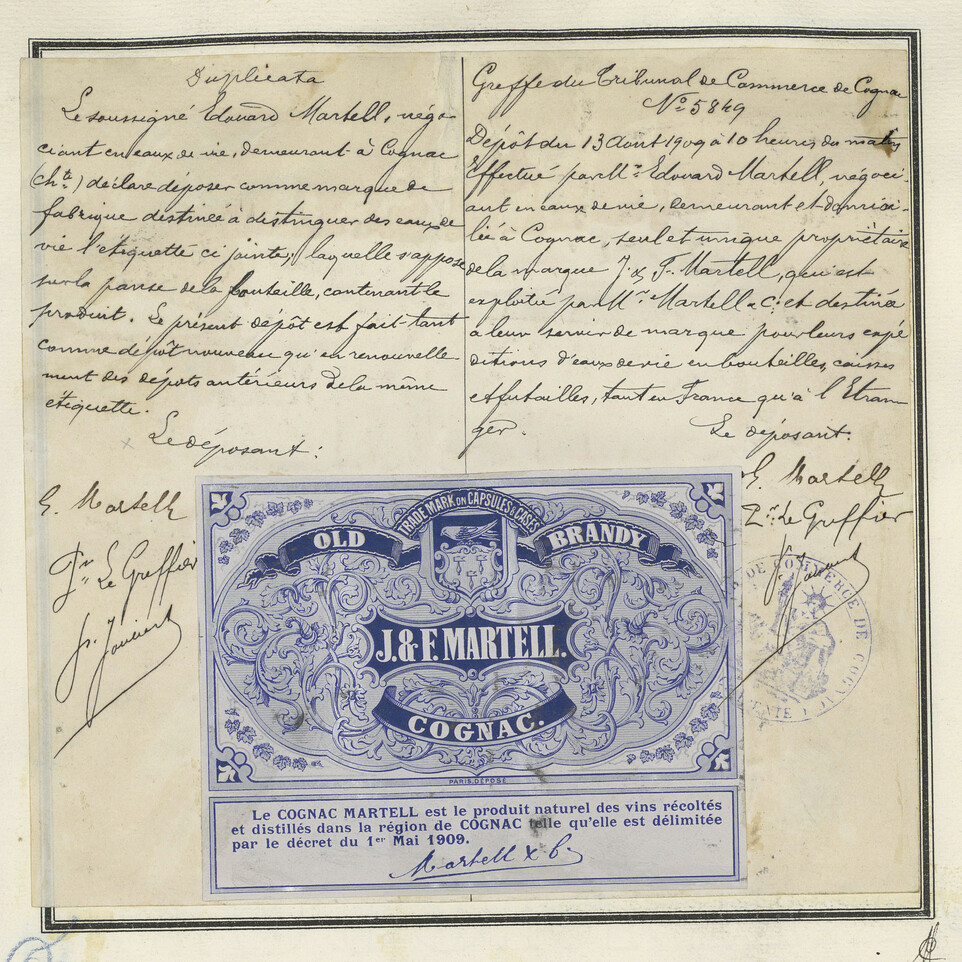 Duplicata
Le soussigné Edouard Martell, négo-
ciant en eaux de vie, demeurant à Cognac
(Chte) déclare déposer comme marque de
fabrique destinée à distinguer des eaux de
vie l'étiquette ci jointe, laquelle s'appose
sur la panse de la bouteille, contenant le
produit. Le présent dépôt est fait tant
comme dépôt nouveau qu'en renouvelle
ment des dépots antérieurs de la même
etiquette.
Le déposant:
E. Martell
Le Greffier
Greffe du Tribunal de Commerce de Cognac
No 5849
Dépôt du 13 Août 1909 à 10 heures du matin
Effectué par Mr Edouard Martell, négoci-
ant en eaux de vie, demeurant et domici-
lié à Cognac, seul et unique propriétaire
de la marque J. & F. Martell, qui est
exploitée par Mrs Martell & Cie et destinée
à leur servir de marque pour leurs expé
ditions d'eaux de vie en bouteilles, caisses
et futailles, tant en France qu'à l'Etran-
ger.
Le déposant.
E. Martell
Le Greffier
DE COMMERCE DE COGNAC
TRADE MARK ON CAPSULES & CASES
OLD BRANDY
J. & F. MARTELL.
COGNAC.
PARIS. DÉPOSÉ
Le COGNAC MARTELL est le produit naturel des vins récoltés
et distillés dans la région de COGNAC telle qu'elle est délimitée
par le décret du 1er Mai 1909.
Martell & Co